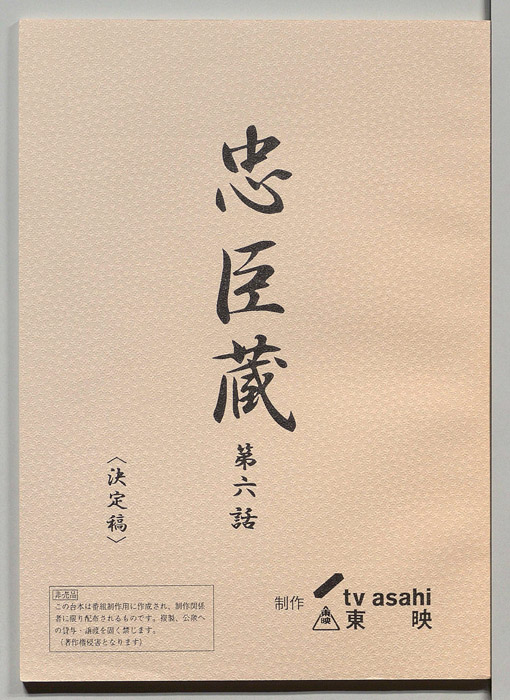 忠臣蔵
第六話
〈決定稿〉
非売品
この台本は番組制作用に作成され、制作関係
者に限り配布されるものです。複製、公衆へ
の貸与・譲渡を固く禁じます。
(著作権侵害となります)
制作
tv asahi
東映
東映